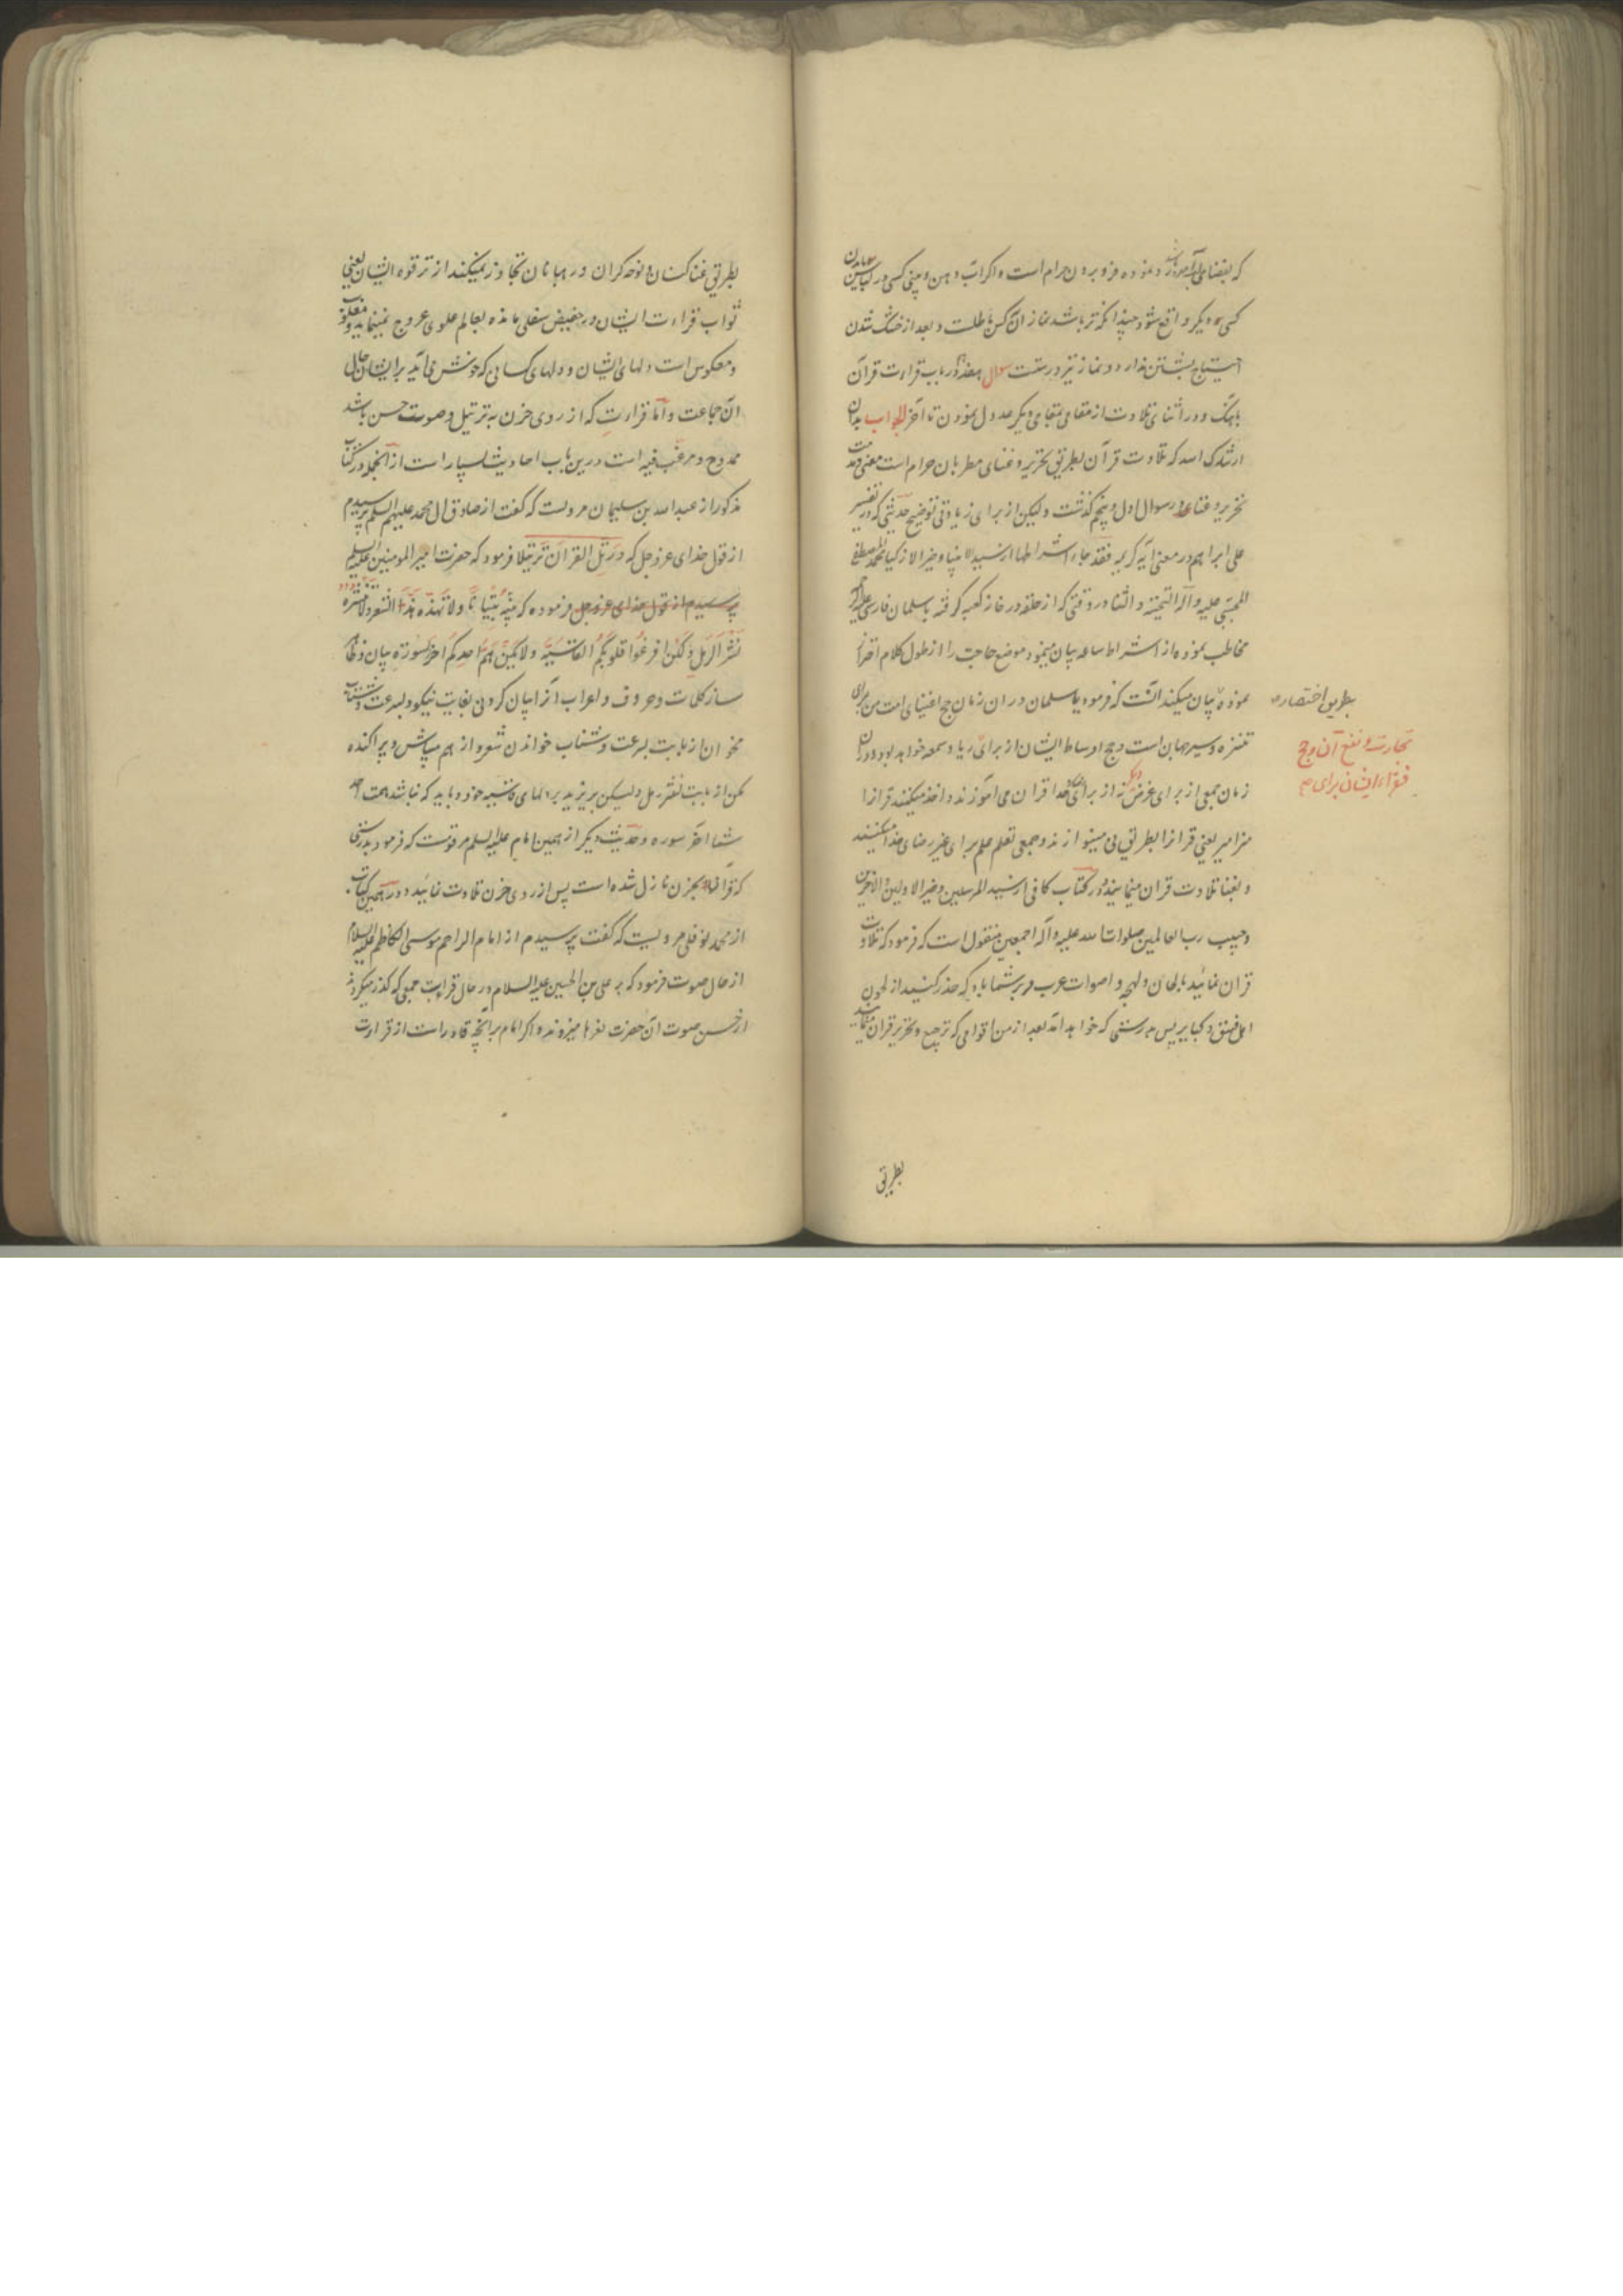 که بفضای آمده و نموده فرو بردن حرام است و اگر آب دهن و بینی کسی در لباس بدن
کسی دیگر واقع شود چندانکه تر باشد نماز آن کس باطلست و بعد از خشک شدن
احتیاج بشستن ندارد و نماز نیز درست سؤال هفدهم در باب قراءت قرآن
باهنگ و در اثنای تلاوت از مقامی بمقامی دیگر عدول نمودن تا آخر الجواب بدان
ارشدک الله که تلاوت قرآن بطریق تحریر و غنای مطربان حرام است معنی و حرمت
تحریر و غنا در سؤال اول و پنجم گذشت ولیکن از برای زیادتی توضیح حدیثی که در تفسیر
علی ابراهیم در معنی آیه کریمه فقد جاء اشراطها از سید الانبیا و خیر الازکیا محمد المصطفی
المجتبی علیه و آله التحیة و الثنا در وقتی که از حلقه در خانه کعبه گرفته با سلمان فارسی علیه الرحمه
مخاطب نموده از اشراط ساعه بیان مینمود موضع حاجت را از طول کلام احتراز
نموده بیان میکند آنست که فرمود یا سلمان در ان زمان حج اغنیای امت من برای
بطریق اختصار
تنزه و سیر جهان است و حج اوساط ایشان از برای ریا و سمعه خواهد بود و در ان
تجارت و نفع آن و حج
فقراء ایشان برای
زمان جمعی از برای غرض دیگر نه از برای خدا قرآن می آموزند و اخذ میکنند قرآنرا
مزامیر یعنی قرآنرا بطریق نی مینوازند و جمعی تعلم علم برای غیر رضای خدا میکنند
و بغنا تلاوت قرآن مینمایند و در کتاب کافی از سید المرسلین و خیر الاولین و الاخرین
و حبیب رب العالمین صلوات الله علیه و آله اجمعین منقول است که فرمود که تلاوت
قرآن نمائید بالحان و لهجه و اصوات عرب و بر شما باد که حذر کنید از لحون
اهل فسق و کبایر پس بدرستی که خواهد آمد بعد از من اقوامی که ترجیع و تحریر قرآن نمایند
بطریق
بطریق غنا کنان و نوحه گران و رهبانان تجاوز نمیکند از ترقوه ایشان یعنی
ثواب قراءت ایشان در حضیض سفلی مانده بعالم علوی عروج نمینماید و مقلوب
و معکوس است دلهای ایشان و دلهای کسانی که خوش می آید بر ایشان حال
آن جماعت و اما قراءت که از روی حزن بترتیل و صوت حسن باشد
ممدوح و مرغب فیه است درین باب احادیث بسیار است از آنجمله در کتاب
مذکور از عبد الله بن سلیمان مرویست که گفت از صادق ال محمد علیهم السلم پرسیدم
از قول خدای عز و جل که و رتل القران ترتیلا فرمود که حضرت امیر المومنین علیه السلم
پرسیدم از قول خدای عز و جل فرموده که بیّنه تبیانا و لا تهذه هذ الشعر و لا تنثره
نثر الرمل ولکن افرغوا قلوبکم القاسیة و لا یکن هم احدکم اخر السورة بیان و ظاهر
ساز کلمات و حروف و اعراب آنرا بیان کردنی بغایت نیکو و بسرعت و شتاب
مخوان از بابت بسرعت و شتاب خواندن شعر و از هم مپاش و پراکنده
مکن از بابت نثر رمل ولیکن بریزید بر دلهای قاسیه خود و باید که نباشد همت احد
شما آخر سوره و حدیث دیگر از همین امام علیه السلم مرویست که فرمود بدرستی
که قرآن بحزن نازل شده است پس از روی حزن تلاوت نمائید و در همین کتاب
از محمد نوفلی مرویست که گفت پرسیدم از امام الراحم موسی الکاظم علیه السلام
از حال صوت فرمود که بر علی بن الحسین علیه السلام در حال قراءت جمعی که گذر میکردند
از حسن صوت آن حضرت نعرها میزوند و اگر امام بر آنچه قادر است از قراءت